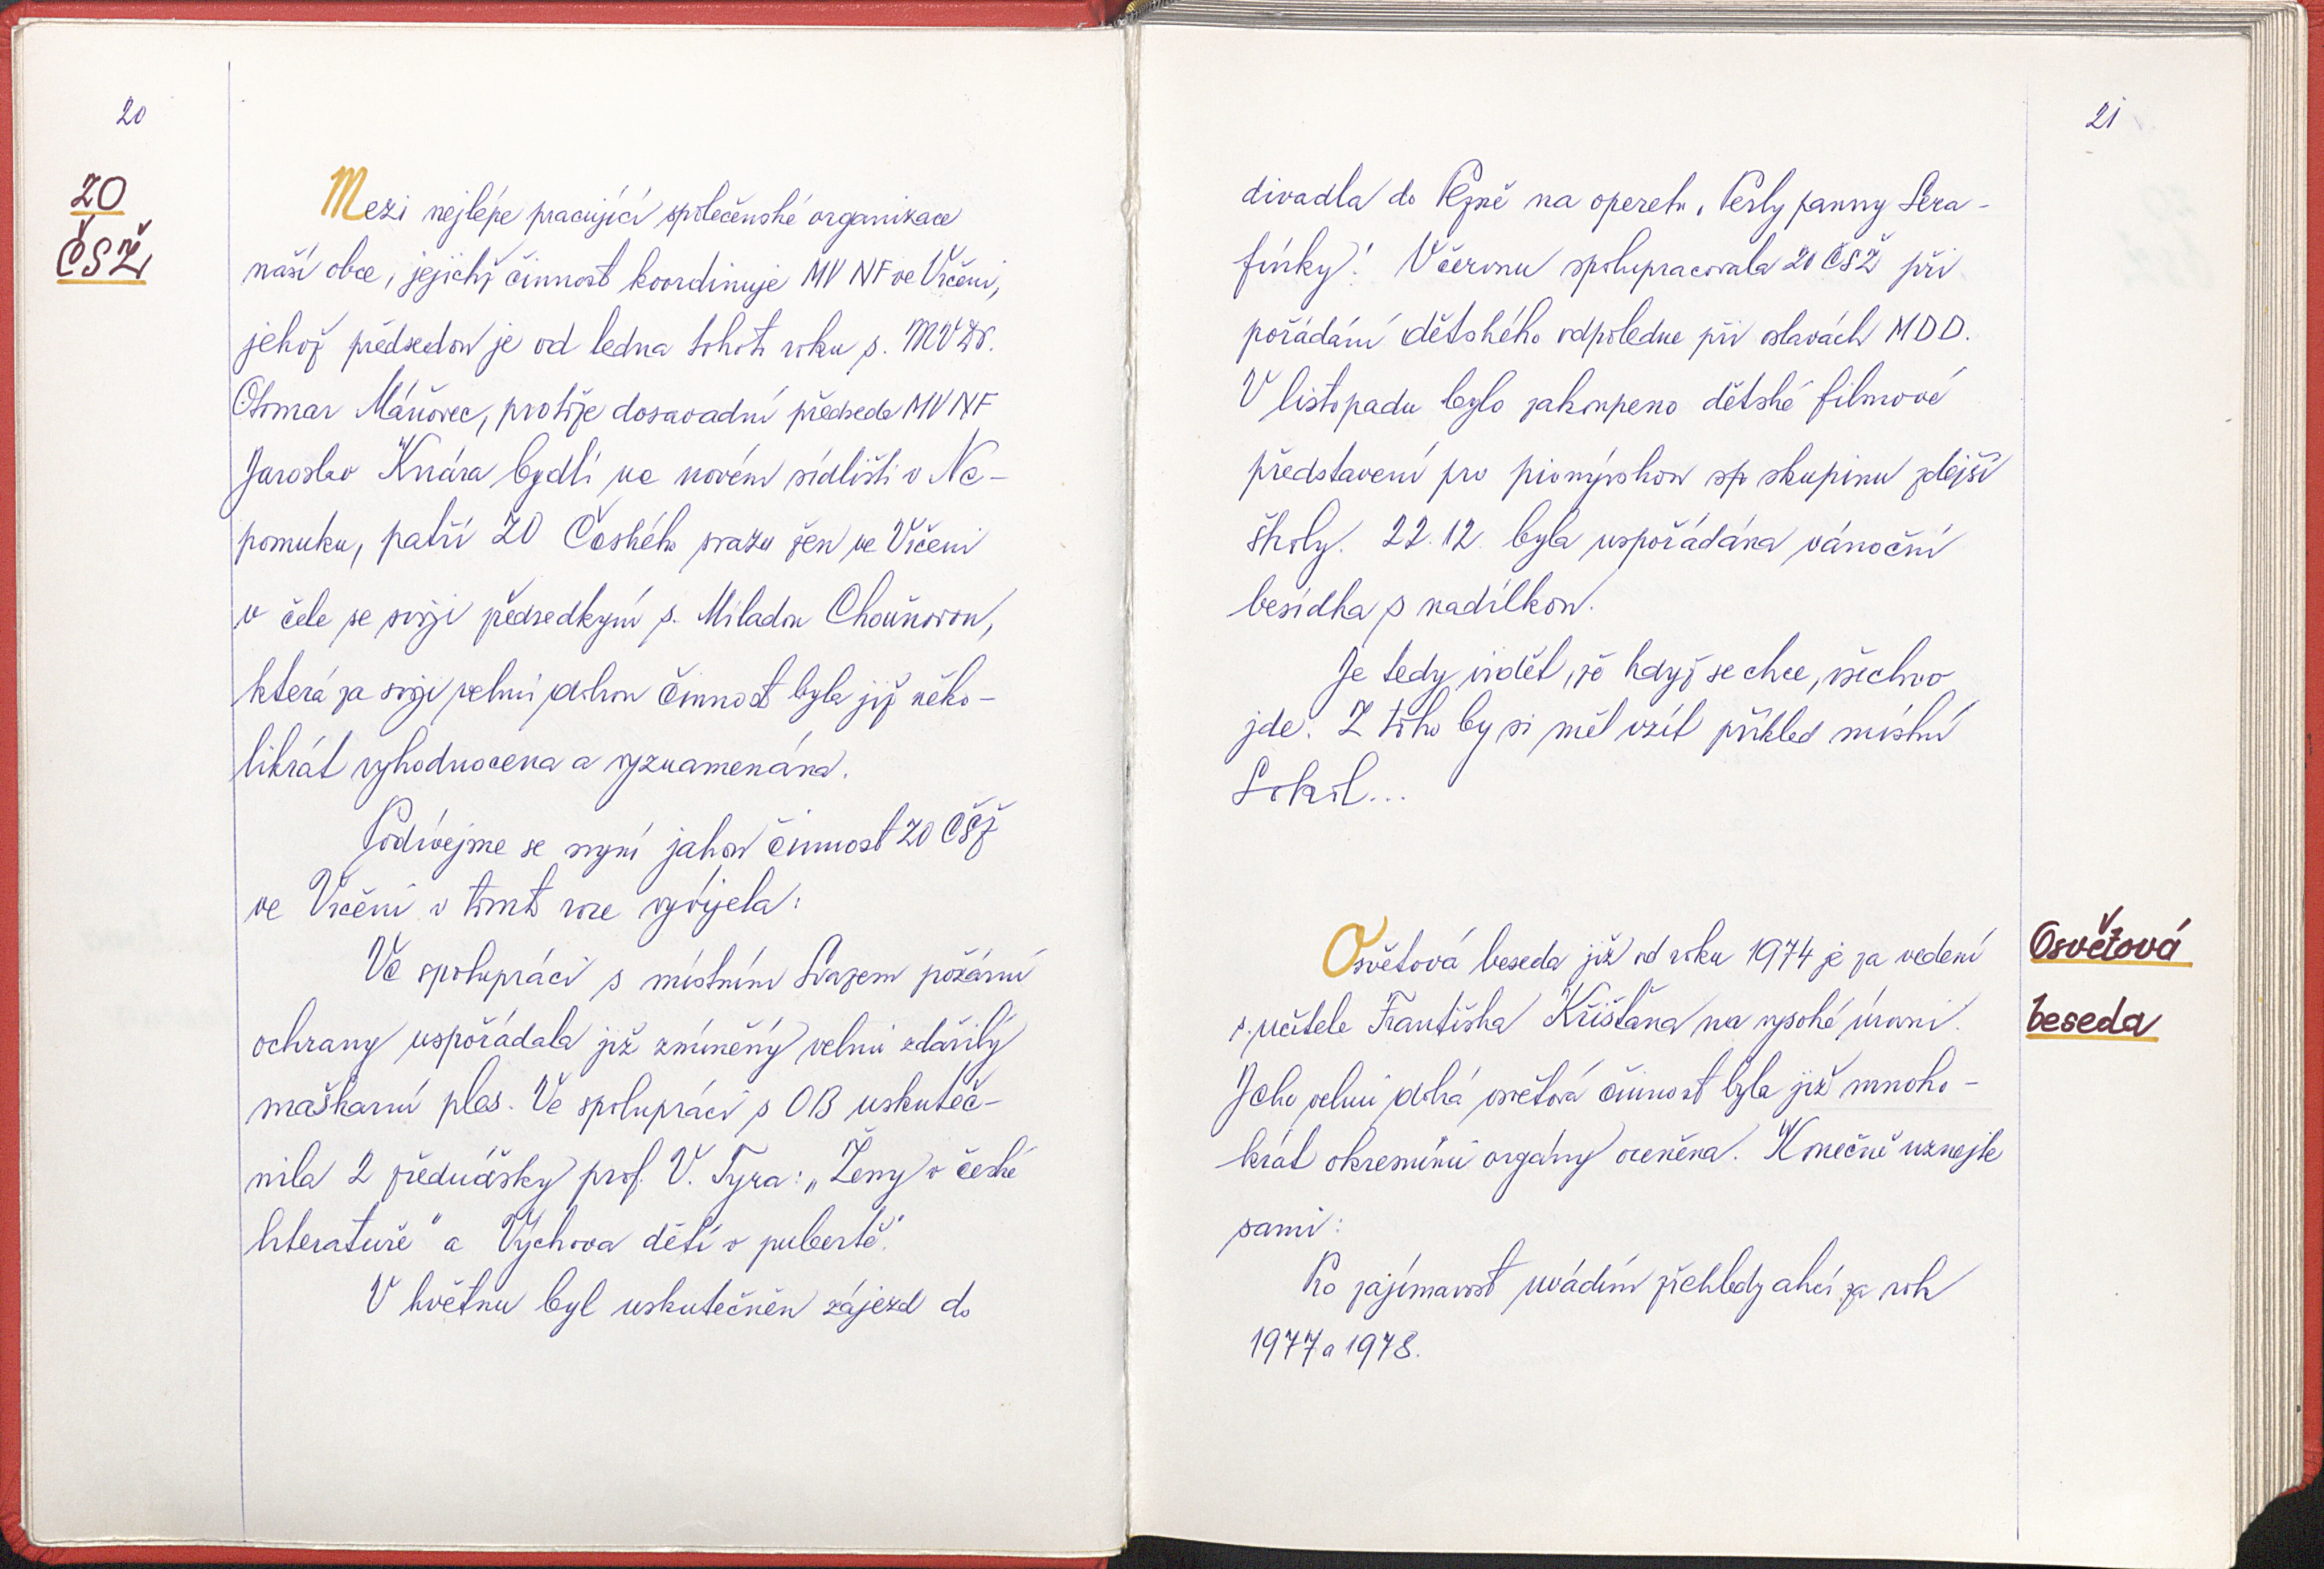 20
ZO
ČSŽ
Mezi nejlépe pracující společenské organizace
naší obce, jejichž činnost koordinuje MV NF ve Vrčeni,
jehož předsedou je od ledna tohoto roku s. MVDr.
Otomar Máňovec, protože dosavadní předseda MV NF
Jaroslav Knára bydlí na novém sídlišti v Ne-
pomuku, patří ZO Českého svazu žen ve Vrčeni
v čele se svojí předsedkyní s. Miladou Chouňovou,
která za svoji velmi dobrou činnost byla již něko-
likrát vyhodnocena a vyznamenána.
Podívejme se nyní jakou činnost ZO ČSŽ
ve Vrčeni v tomto roce vyvíjela:
Ve spolupráci s místním Svazem požární
ochrany uspořádala již zmíněný velmi zdařilý
maškarní ples. Ve spolupráci s OB uskuteč-
nila 2 přednášky prof. V. Tyra: „Ženy v české
literatuře" a Výchova dětí v pubertě".
V květnu byl uskutečněn zájezd do
21
divadla do Plzně na operetu „Perly panny Sera-
fínky". V červnu spolupracovala ZO ČSŽ při
pořádání dětského odpoledne při oslavách MDD.
V listopadu bylo zakoupeno dětské filmové
představení pro pionýrskou sp skupinu zdejší
školy. 22. 12. byla uspořádána vánoční
besídka s nadílkou.
Je tedy vidět, že když se chce, všechno
jde. Z toho by si měl vzít příklad místní
Sokol...
Osvětová
beseda
Osvětová beseda již od roku 1974 je za vedení
s. učitele Františka Křišťana na vysoké úrovni.
Jeho velmi dobrá osvětová činnost byla již mnoho-
krát okresními orgány oceněna. Konečně uznejte
sami:
Pro zajímavost uvádím přehledy akcí za rok
1977 a 1978.